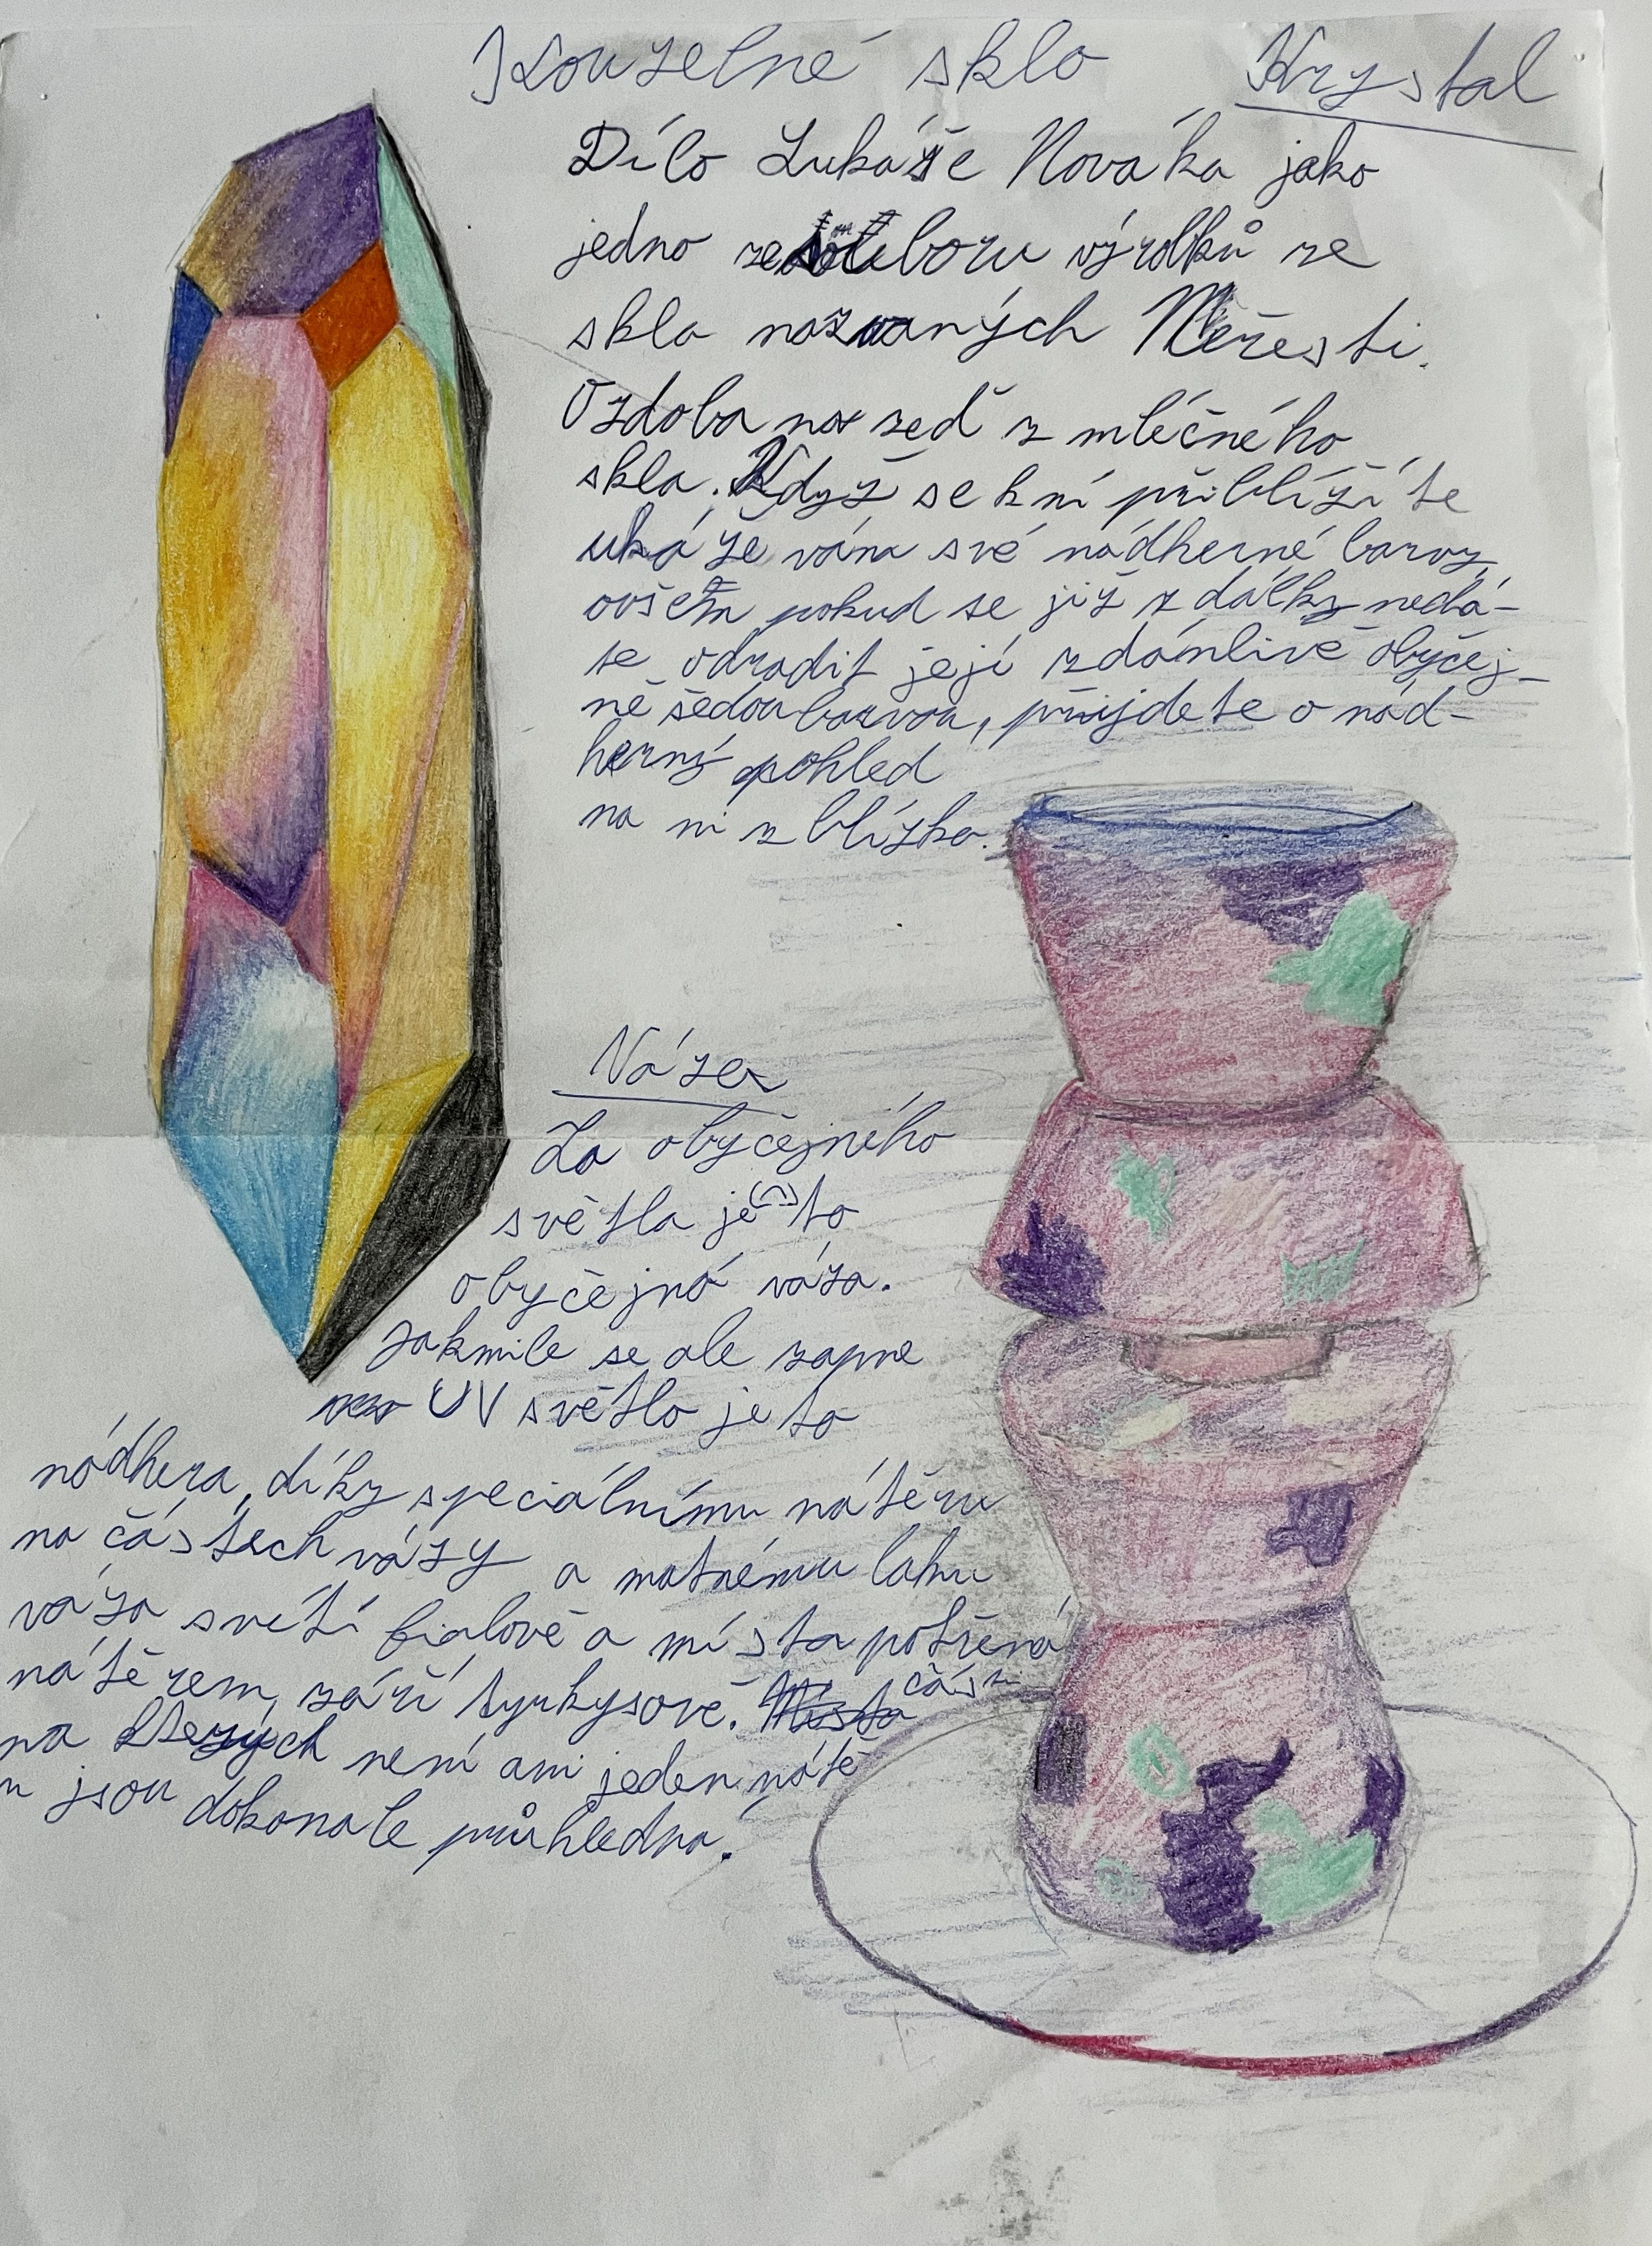 Kouzelné sklo
Krystal
Dílo Lukáše Nováka jako
jedno ze souboru výrobků ze
skla nazvaných Neřesti.
Ozdoba na zeď z mléčného
skla. Když se k ní přiblížíte
ukáže vám své nádherné barvy,
ovšem pokud se již z dálky nedá-
te odradit její zdánlivě obyčej-
ně šedou barvou, přijdete o nád-
herný pohled
na ni z blízka.
Váza
Za obyčejného
světla je to
obyčejná váza.
Jakmile se ale zapne
UV světlo je to
nádhera, díky speciálnímu nátěru
na částech vázy a matnému laku
váza svítí fialově a místa potřená
nátěrem září tyrkysově. Místa části
na kterých není ani jeden nátě
r jsou dokonale průhledná.